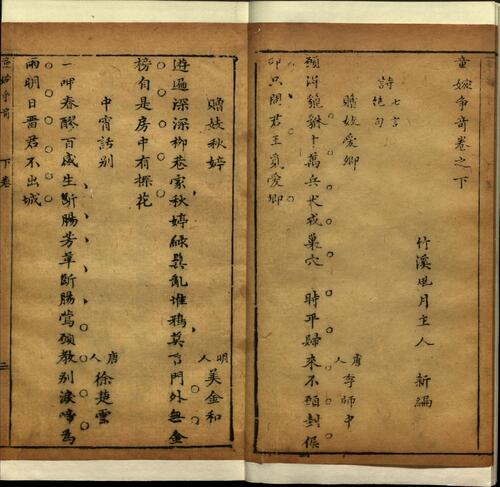 童婉爭奇卷之下
竹溪風月主人 新編
詩 七言絕句
贈妓愛卿
唐人 李師中
頭滸貔貅十萬兵犬戎巢穴 時平歸來不須封侯
印只問君王覓愛卿
贈妓秋婷
明人 姜金和
遊遍深深柳巷家秋婷綠鬢亂堆鴉莫言門外無金
榜自是房中有探花
中宵話別
唐人 徐楚雲
一呷春醪百感生斷腸芳草斷腸鶯須教別淚啼為
雨明日留君不出城
童婉爭奇 下卷 二